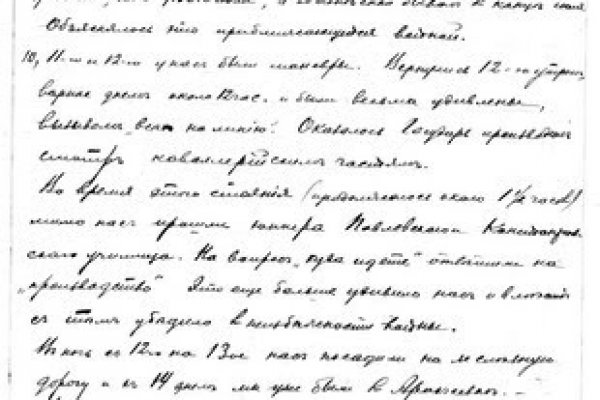 Объяснялось это приближающейся войной.
10, 11-го и 12-го у нас были маневры. Вернулись 12-го утром,
вернее днем около 12 час. и были весьма удивлены,
вызовом „всех на линию“. Оказалось Государь производит
смотр кавалерийским частям.
Во время этого стояния (продолжалось около 1½ часов)
мимо нас прошли юнкера Павловского
ского училища. На вопрос „куда идете“ ответили на
„производство“ Это еще больше удивило нас и
с тем убедило в неизбежности войны.
В ночь с 12го на 13ое нас посадили на железную
дорогу и 14 днем мы уже были в